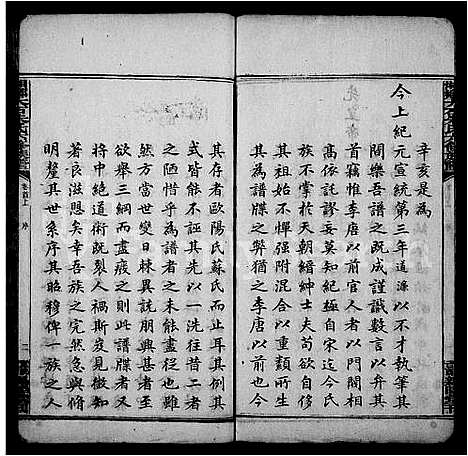 辛亥是為
今上紀元宣統第三年道源以不才執筆其
間樂吾譜之既成謹識數言以弁其
首竊惟李唐以前官人者以門閥相
高依託謬妄莫知紀極自宋迄今氏
族不掌於天朝縉紳士夫苟欲自侈
其祖不憚強附混合以重顜所生
其為譜牒之弊猶之李唐以前也今
其存者歐陽氏蘇氏而止耳其例其
式皆能不誣其先以一洗往昔二者
之陋惜乎為譜者之未能盡從也雖
然方當世變日棘異說朋興甚者乃
欲舉三綱而盡廢之則此譜牒者又
將中絕道術既裂人禍斯亟見微知
著良滋懸矣幸吾族之完然忽奮
明釐其世系序其昭穆俾一族之人
卷首上
序